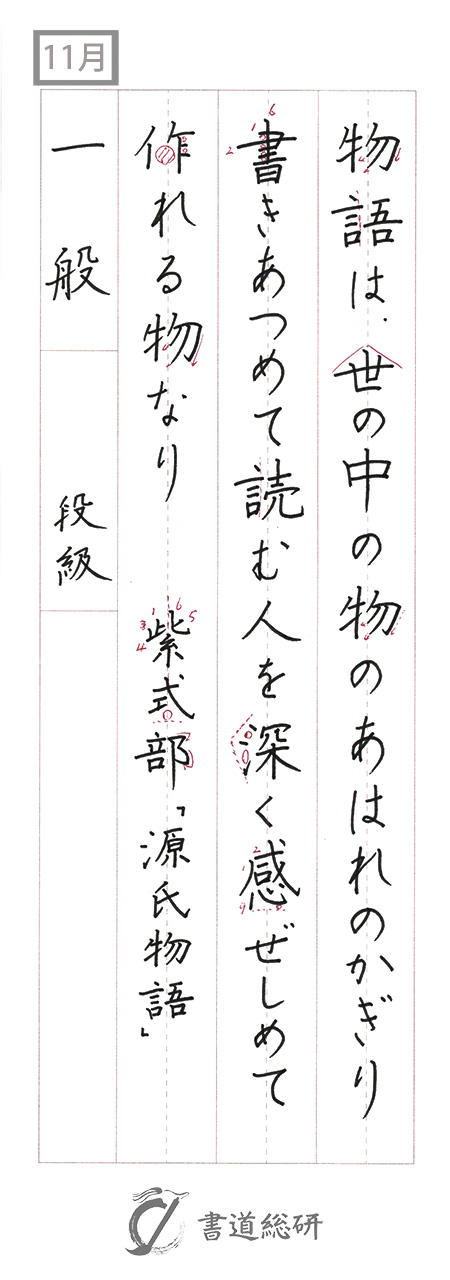 11月
物語は、世の中の物のあはれのかぎり
書きあつめて読む人を深く感ぜしめて
作れる物なり 紫式部「源氏物語」
一般 段級
書道総研